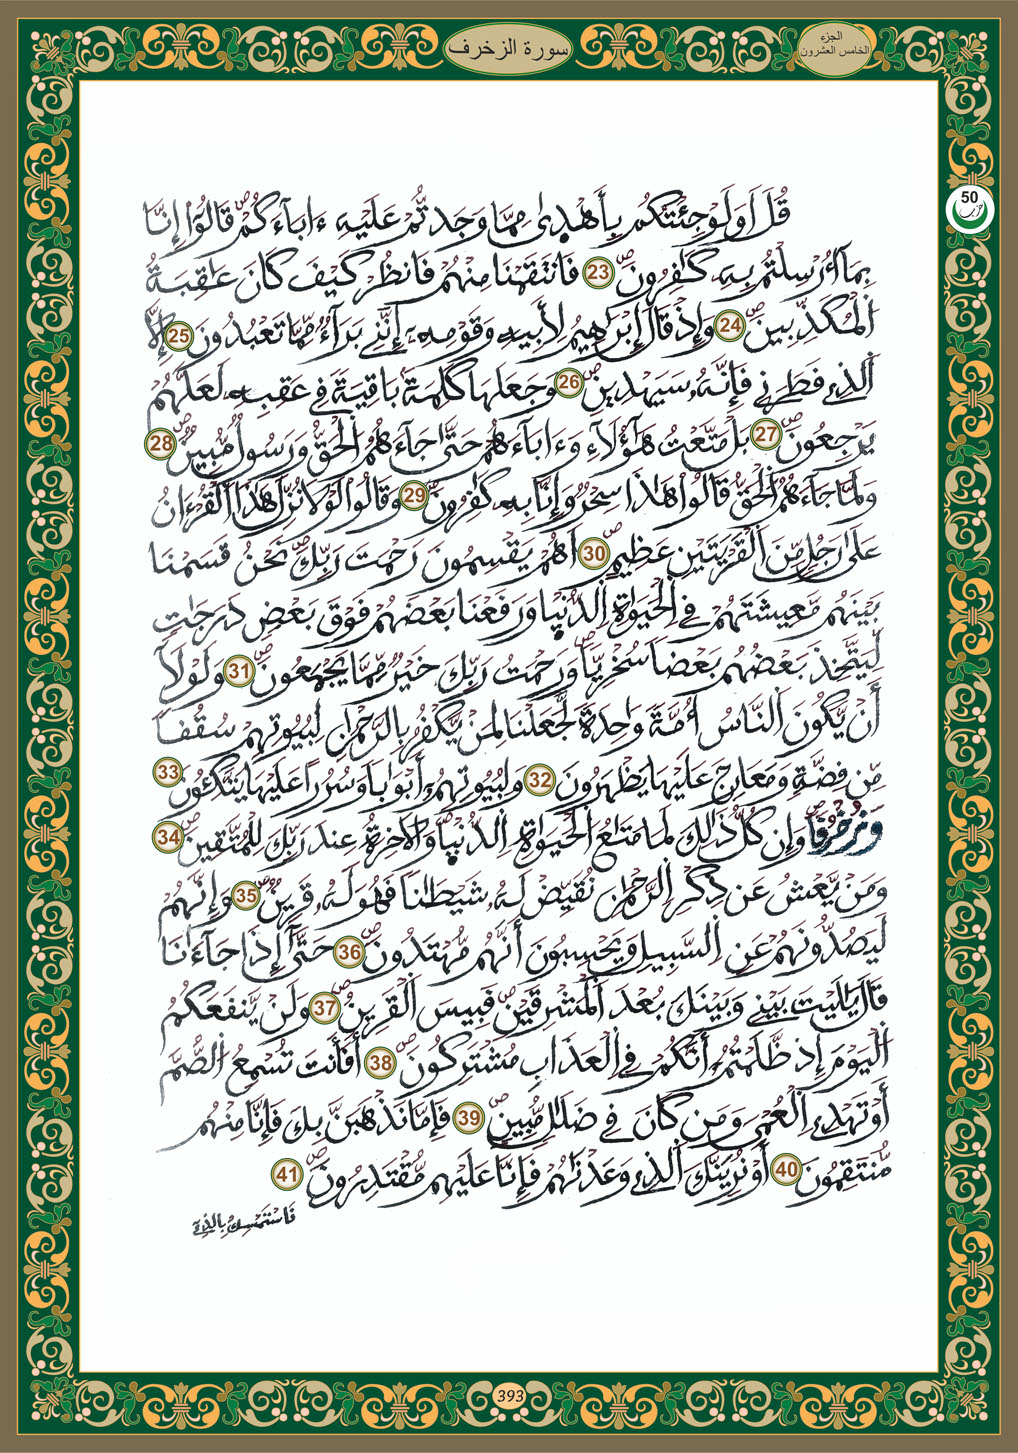 الجزء
الخامس العشرون
سورة الزخرف
50
حزب
قُلَ اَوَلَوْ جِئْتُكُم بِأَهْدٜىٰ مِمَّا وَجَدتُّمْ عَلَيْهِ ءَابَآءَكُمْ قَالُوٓاْ إِنَّا
بِمَآ أُرْسِلْتُم بِهِۦ كَٰفِرُونَۖ 23 فَانتَقَمْنَا مِنْهُمْ فَانظُرْ كَيْفَ كَانَ عَٰقِبَةُ
اُ۬لْمُكَذِّبِينَۖ 24 وَإِذْ قَالَ إِبْرَٰهِيمُ لِأَبِيهِ وَقَوْمِهِۦٓ إِنَّنِے بَرَآءٞ مِّمَّا تَعْبُدُونَ 25 إِلَّا
اَ۬لذِے فَطَرَنِے فَإِنَّهُۥ سَيَهْدِينِۖ 26 وَجَعَلَهَا كَلِمَةَۢ بَاقِيَةٗ فِے عَقِبِهِۦ لَعَلَّهُمْ
يَرْجِعُونَۖ 27 بَلْ مَتَّعْتُ هَٰٓؤُلَآءِ وَءَابَآءَهُمْ حَتَّىٰ جَآءَهُمُ اُ۬لْحَقُّ وَرَسُولٞ مُّبِينٞۖ 28
وَلَمَّا جَآءَهُمُ اُ۬لْحَقُّ قَالُواْ هَٰذَا سِحْرٞ وَإِنَّا بِهِۦ كَٰفِرُونَۖ 29 وَقَالُواْ لَوْلَا نُزِّلَ هَٰذَا اَ۬لْقُرْءَانُ
عَلَىٰ رَجُلٖ مِّنَ اَ۬لْقَرْيَتَيْنِ عَظِيمٍۖ 30 اَهُمْ يَقْسِمُونَ رَحْمَتَ رَبِّكَۖ نَحْنُ قَسَمْنَا
بَيْنَهُم مَّعِيشَتَهُمْ فِے اِ۬لْحَيَوٰةِ اِ۬لدُّنْيٜا وَرَفَعْنَا بَعْضَهُمْ فَوْقَ بَعْضٖ دَرَجَٰتٖ
لِّيَتَّخِذَ بَعْضُهُم بَعْضاٗ سُخْرِيّاٗۖ وَرَحْمَتُ رَبِّكَ خَيْرٞ مِّمَّا يَجْمَعُونَۖ 31 وَلَوْلَآ
أَنْ يَّكُونَ اَ۬لنَّاسُ أُمَّةٗ وَٰحِدَةٗ لَّجَعَلْنَا لِمَنْ يَّكْفُرُ بِالرَّحْمَٰنِ لِبُيُوتِهِمْ سُقُفاٗ
مِّن فِضَّةٖ وَمَعَارِجَ عَلَيْهَا يَظْهَرُونَ 32 وَلِبُيُوتِهِمُۥٓ أَبْوَٰباٗ وَسُرُراً عَلَيْهَا يَتَّكِـُٔونَ 33
وَزُخْرُفاٗۖ وَإِن كُلُّ ذَٰلِكَ لَمَا مَتَٰعُ اُ۬لْحَيَوٰةِ اِ۬لدُّنْيٜاۖ وَالَاخِرَةُ عِندَ رَبِّكَ لِلْمُتَّقِينَۖ 34
وَمَنْ يَّعْشُ عَن ذِكْرِ اِ۬لرَّحْمَٰنِ نُقَيِّضْ لَهُۥ شَيْطَٰناٗ فَهُوَ لَهُۥ قَرِينٞۖ 35 وَإِنَّهُمْ
لَيَصُدُّونَهُمْ عَنِ اِ۬لسَّبِيلِ وَيَحْسِبُونَ أَنَّهُم مُّهْتَدُونَۖ 36 حَتَّىٰٓ إِذَا جَآءَٰنَا
قَالَ يَٰلَيْتَ بَيْنِے وَبَيْنَكَ بُعْدَ اَ۬لْمَشْرِقَيْنِۖ فَبِيسَ اَ۬لْقَرِينُۖ 37 وَلَنْ يَّنفَعَكُمُ
اُ۬لْيَوْمَ إِذ ظَّلَمْتُمُۥٓ أَنَّكُمْ فِے اِ۬لْعَذَابِ مُشْتَرِكُونَۖ 38 أَفَأَنتَ تُسْمِعُ اُ۬لصُّمَّ
أَوْ تَهْدِے اِ۬لْعُمْيَ وَمَن كَانَ فِے ضَلَٰلٖ مُّبِينٖۖ 39 فَإِمَّا نَذْهَبَنَّ بِكَ فَإِنَّا مِنْهُم
مُّنتَقِمُونَ 40 أَوْ نُرِيَنَّكَ اَ۬لذِے وَعَدْنَٰهُمْ فَإِنَّا عَلَيْهِم مُّقْتَدِرُونَۖ 41
فَاسْتَمْسِكْ بِالذِےٓ
393